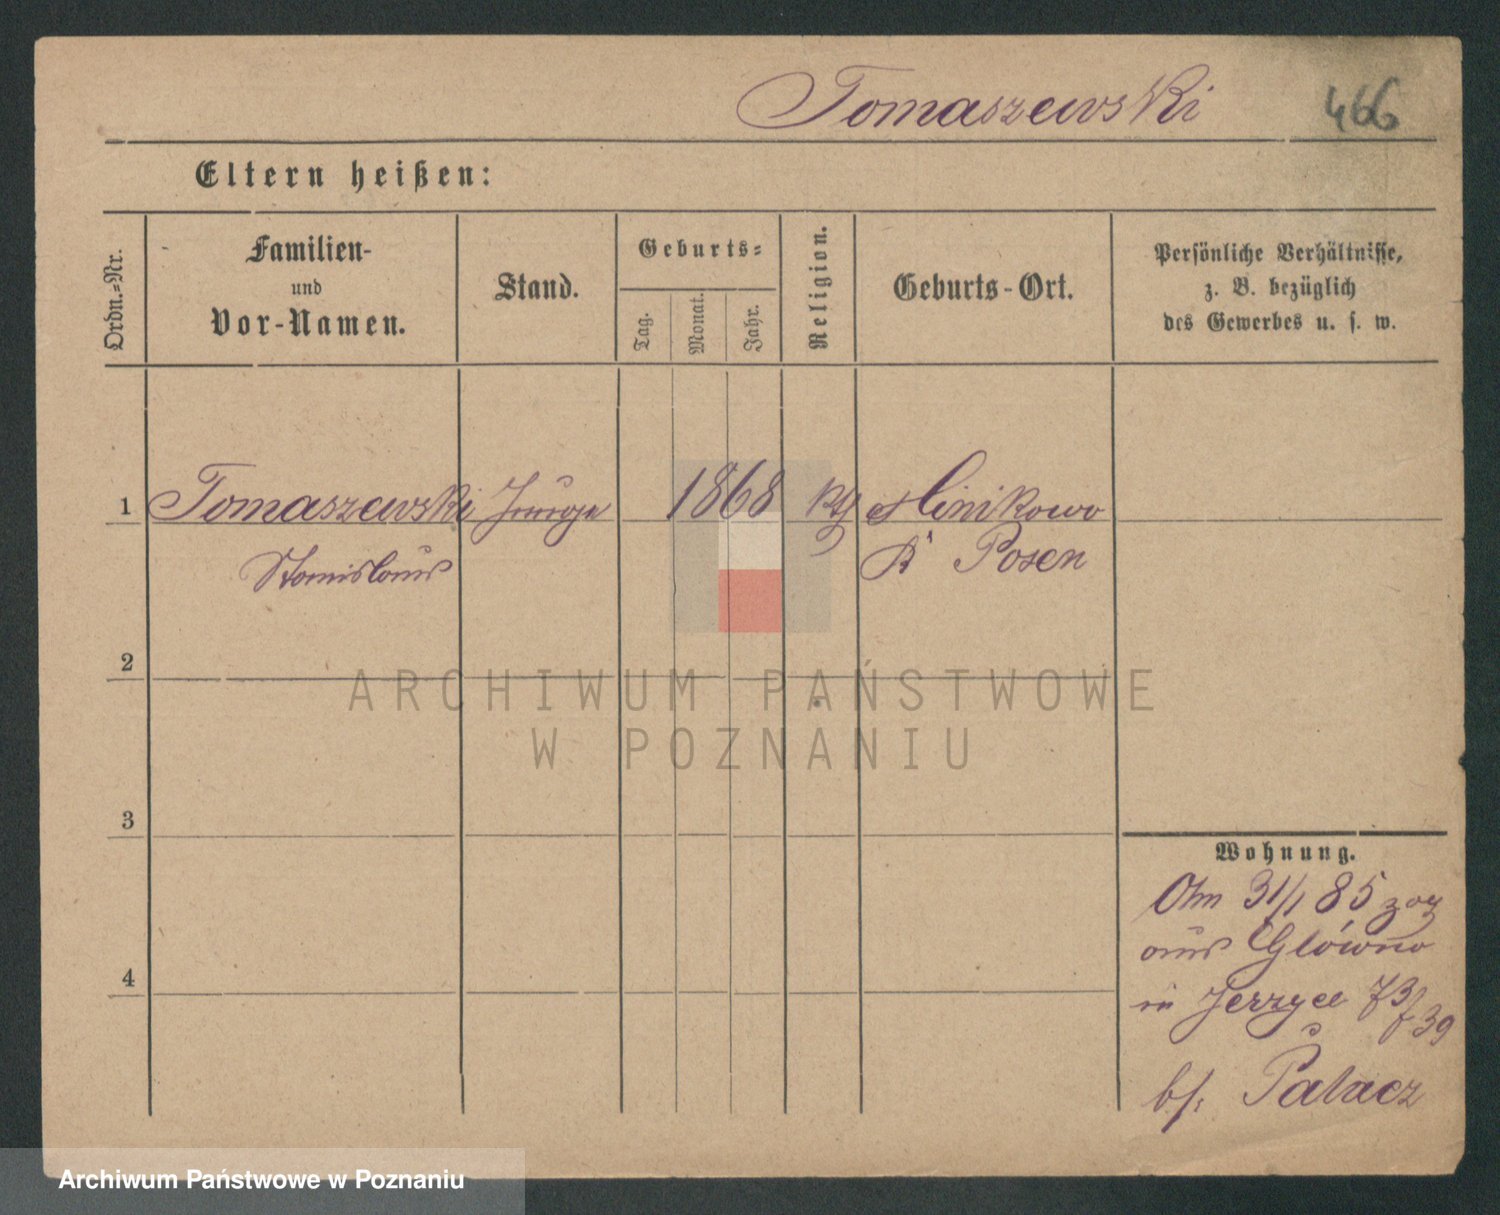 Tomaszewski 466
Eltern heißen:
Ordn.-Nr.
Familien-
und
Vor-Namen.
Stand.
Geburts-
Tag.
Monat.
Jahr.
Religion.
Geburts-Ort.
Persönliche Verhältnisse,
z. B. bezüglich
des Gewerbes u. s. w.
1 Tomaszewski Junge 1868 kth Hinikowo
Stanislaus Kr Posen
2
3
4
Wohnung.
Am 31/1 85 zog
aus Główno
in Jerzyce 73/39
bf: Palacz
ARCHIWUM PAŃSTWOWE
W POZNANIU
Archiwum Państwowe w Poznaniu